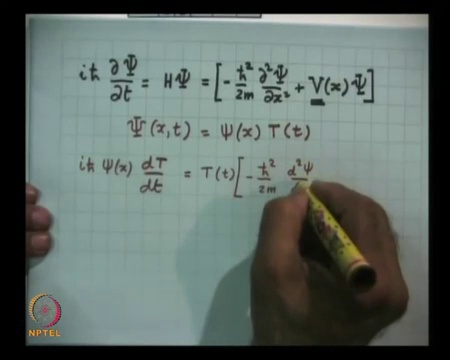 iħ ∂Ψ/∂t = HΨ = [-ħ²/2m ∂²Ψ/∂x² + V(x)Ψ]
Ψ(x,t) = ψ(x) T(t)
iħ ψ(x) dT/dt = T(t)[-ħ²/2m d²ψ
NPTEL